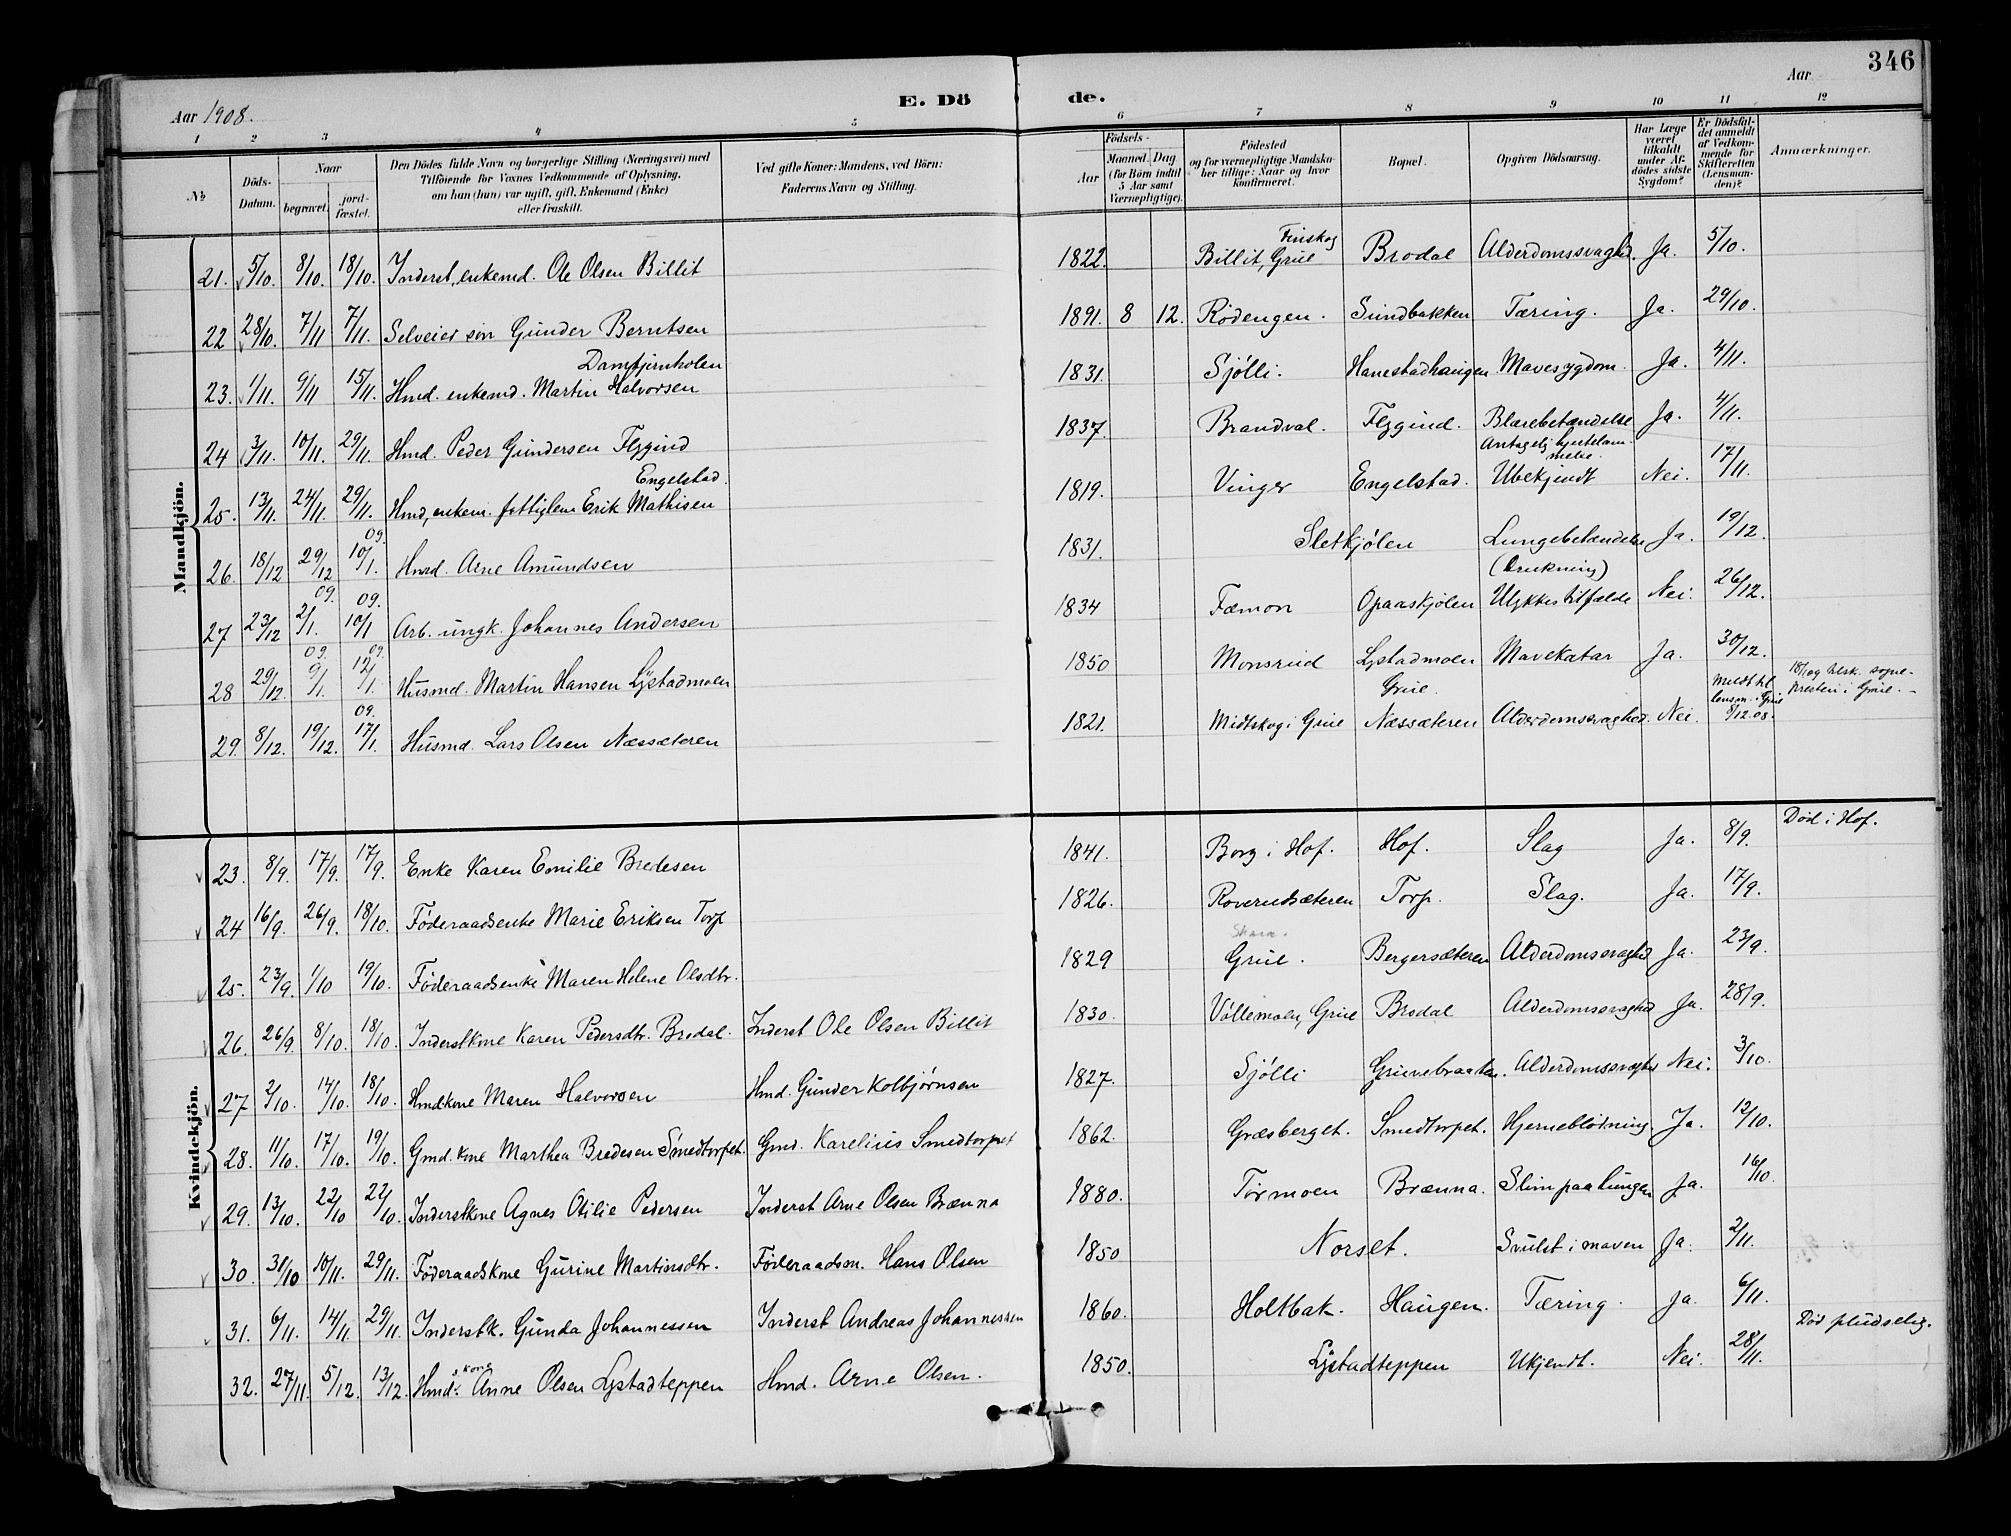 346
Aar 1908.
E. Dö de.
Aar
1 2 3 4 5 6 7 8 9 10 11 12
No
Döds-Datum.
Naar
begravet.
jord-fæstet.
Den Dödes fulde Navn og borgerlige Stilling (Næringsvei) med
Tilföiende for Voxnes Vedkommende af Oplysning,
om han (hun) var ugift, gift, Enkemand (Enke)
eller fraskilt.
Ved gifte Koner: Mandens, ved Börn:
Faderens Navn og Stilling.
Födsels-
Aar
Maaned. Dag
(for Börn indtil
5 Aar samt
Værnepligtige).
Födested
og for værnepligtige Mandska-
ber tillige: Naar og hvor
konfirmeret.
Bopæl.
Opgiven Dödsaarsag.
Har Læge
været
tilkaldt
under Af-
dödes sidste
Sygdom?
Er Dödsfal-
det anmeldt
af Vedkom-
mende for
Skifteretten
(Lensman-
den)?
Anmærkninger.
Mandkjön.
21. 5/10. 8/10. 18/10. Inderst, enkemd. Ole Olsen Billit 1822. Billit, Grue Finskog Brodal Alderdomssvaghd. Ja. 5/10.
22 28/10. 7/11 7/11. Selveier søn Gunder Berntsen 1891. 8 12. Rödengen. Sundbakken Tæring. Ja. 29/10.
Damtjernholen
23. 1/11. 9/11 15/11. Hmd. enkemd. Martin Halvorsen 1831. Sjölli. Hanestadhaugen Mavesygdom. Ja. 4/11.
24 3/11. 10/11. 29/11. Hmd. Peder Gundersen Flygind 1837. Brandval. Flygind. Blærebetændelse Ja. 4/11.
Engelstad.
Antagelig hjertelammelse.
25. 13/11. 24/11. 29/11. Hmd, enkem. fattiglem Erik Mathisen 1819. Vinger Engelstad. Ubekjendt Nei. 17/11.
26. 18/12 29/12 10/1. 09. Hmd. Arne Amundsen 1831. Sletkjölen Lungebetændelse Ja. 19/12.
(Drukning)
27 23/12 2/1. 09. 10/1 09. Arb. ungk. Johannes Andersen 1834 Fæmon Opaaskjölen Ulykkestilfælde Nei. 26/12.
28 29/12. 9/1. 09. 12/1. 09. Husmd. Martin Hansen Lystadmoen 1850 Monsrud Lystadmoen Mavekatar Ja. 30/12.
Grue. Meldt til lensm. i Grue 9/12 08. 18/1 09 tilsk. sogne-presten i Grue.-
29. 8/12. 19/12. 17/1. 09. Husmd. Lars Olsen Næssæteren 1821. Midtskog i Grue Næssæteren Alderdomssvaghed. Nei.
Kvindekjön.
23. 8/9. 17/9. 17/9. Enke Karen Emilie Bredesen 1841. Borg i Hof. Hof. Slag Ja. 8/9. Död i Hof.
24 16/9. 26/9. 18/10. Föderaadsenke Marie Eriksen Torp 1826. Roverudsæteren Torp. Slag. Ja. 17/9.
25. 23/9. 1/10 19/10. Föderaadsenke Maren Helene Olsdtr. 1829 Grue. Bergersæteren Alderdomssvaghd Ja. 23/9.
26. 26/9. 8/10. 18/10. Inderstkone Karen Pedersdtr. Brodal. Inderst Ole Olsen Billit 1830. Völlemoen, Grue Brodal Alderdomssvaghed Ja. 28/9.
27 2/10. 14/10. 18/10. Hmdkone Maren Halvorsen Hmd. Gunder Kolbjørnsen 1827. Sjölli Gruuebraaten. Alderdomssvaghd Nei. 3/10.
28. 11/10. 17/10. 19/10. Gmd. kone Marthea Bredesen Smedtorpet. Gmd. Karelius Smedtorpet 1862. Græsberget. Smedtorpet. Hjerneblötning. Ja. 12/10.
29. 13/10. 22/10 22/10. Inderstkone Agnes Otilie Pedersen Inderst Arne Olsen Brænna 1880. Törmoen Brænna. Slim paa lungen Ja. 16/10.
30. 31/10 10/11. 29/11. Föderaadskone Gurine Martinsdtr. Föderaadsm. Hans Olsen 1850 Norset. Svulst i maven Ja. 2/11.
31. 6/11. 14/11 29/11. Inderstk. Gunda Johannessen Inderst Andreas Johannessen 1860. Holtbak. Haugen. Tæring. Ja. 6/11.
32. 27/11. 5/12. 13/12 Hmd.skone Anne Olsen Lystadteppen Hmd. Arne Olsen. 1850. Lystadteppen Ukjendt. Nei. 28/11. Död pludselig.